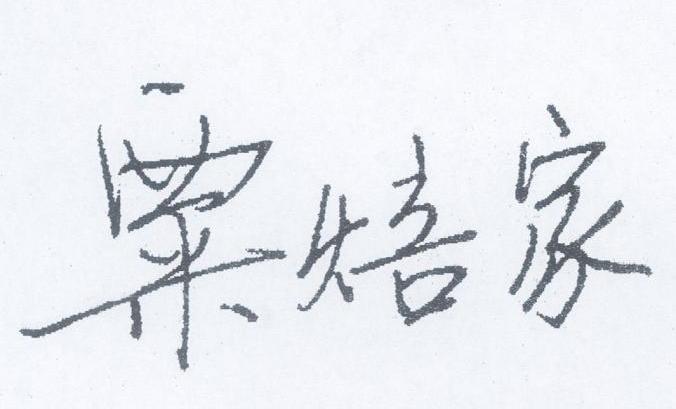 粟焙家